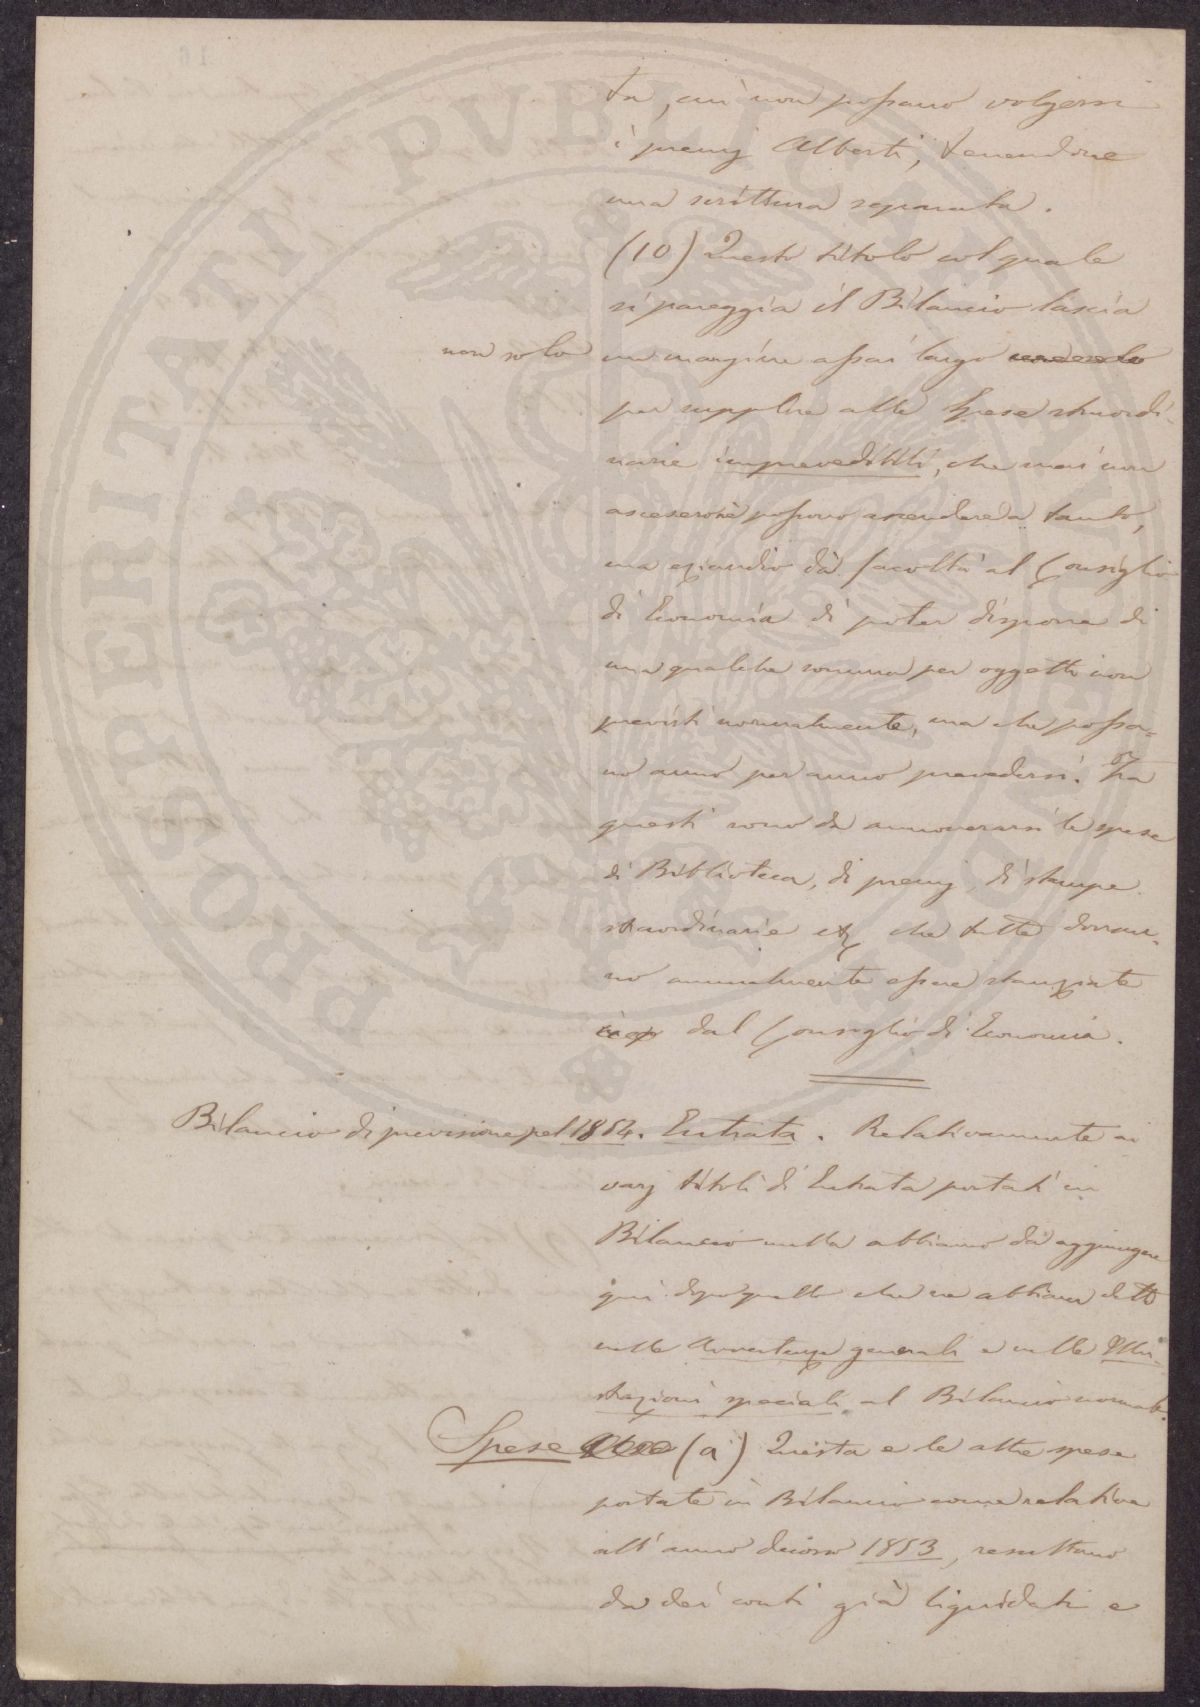 ta, cui non possano volgersi
i premj Alberti, tenendone
una scrittura separata.
(10) Questo titolo col quale
si pareggia il Bilancio lascia
non solo un margine assai largo
per supplire alle Spese straordi-
narie imprevedibili, che mai non
ascesero nè possono ascendere a tanto,
ma eziandio dà facoltà al Consiglio
di Economia di poter disporre di
una qualche somma per oggetti non
previsti normalmente, ma che possa=
no anno per anno prevedersi. Tra
questi sono da annoverarsi le spese
di Biblioteca, di premj, di stampe
straordinarie etc che tutte dovran-
no annualmente essere stanziate
dal Consiglio di Economia.
Bilancio di previsione pel 1854. Entrata. Relativamente ai
varj titoli di Entrata portati in
Bilancio nulla abbiamo da aggiungere
qui dopo quello che ne abbiam detto
nelle Avvertenze generali e nelle Illu-
strazioni speciali al Bilancio normale.
Spese (a) Questa e le altre spese
portate in Bilancio come relative
all'anno decorso 1853, resultano
da dei conti già liquidati e
PROSPERITATI PUBLICAE